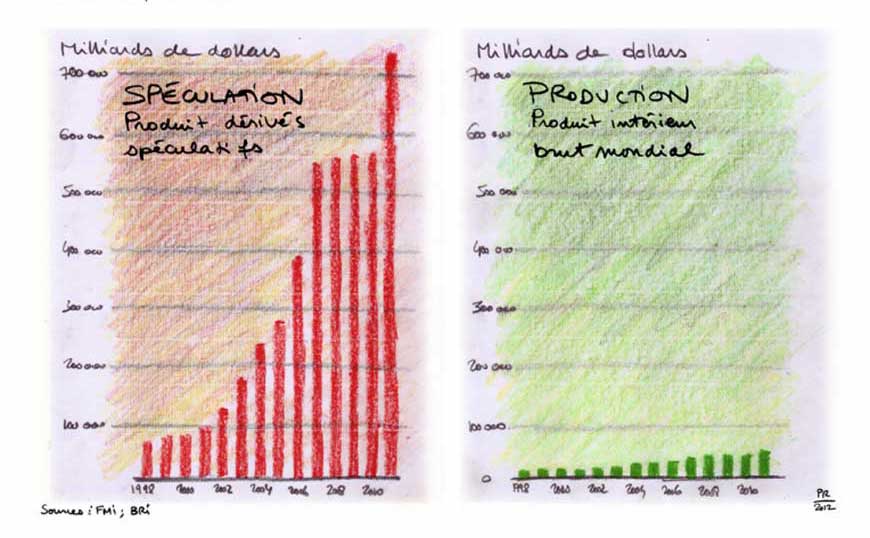 Milliards de dollars
700 000
SPÉCULATION
Produit dérivés
spéculatifs
600 000
500 000
400 000
300 000
200 000
100 000
1998 2000 2002 2004 2006 2008 2010
Milliards de dollars
700 000
PRODUCTION
Produit intérieur
brut mondial
600 000
500 000
400 000
300 000
200 000
100 000
0
1998 2000 2002 2004 2006 2008 2010
Sources : FMi ; BRi
PR
2012